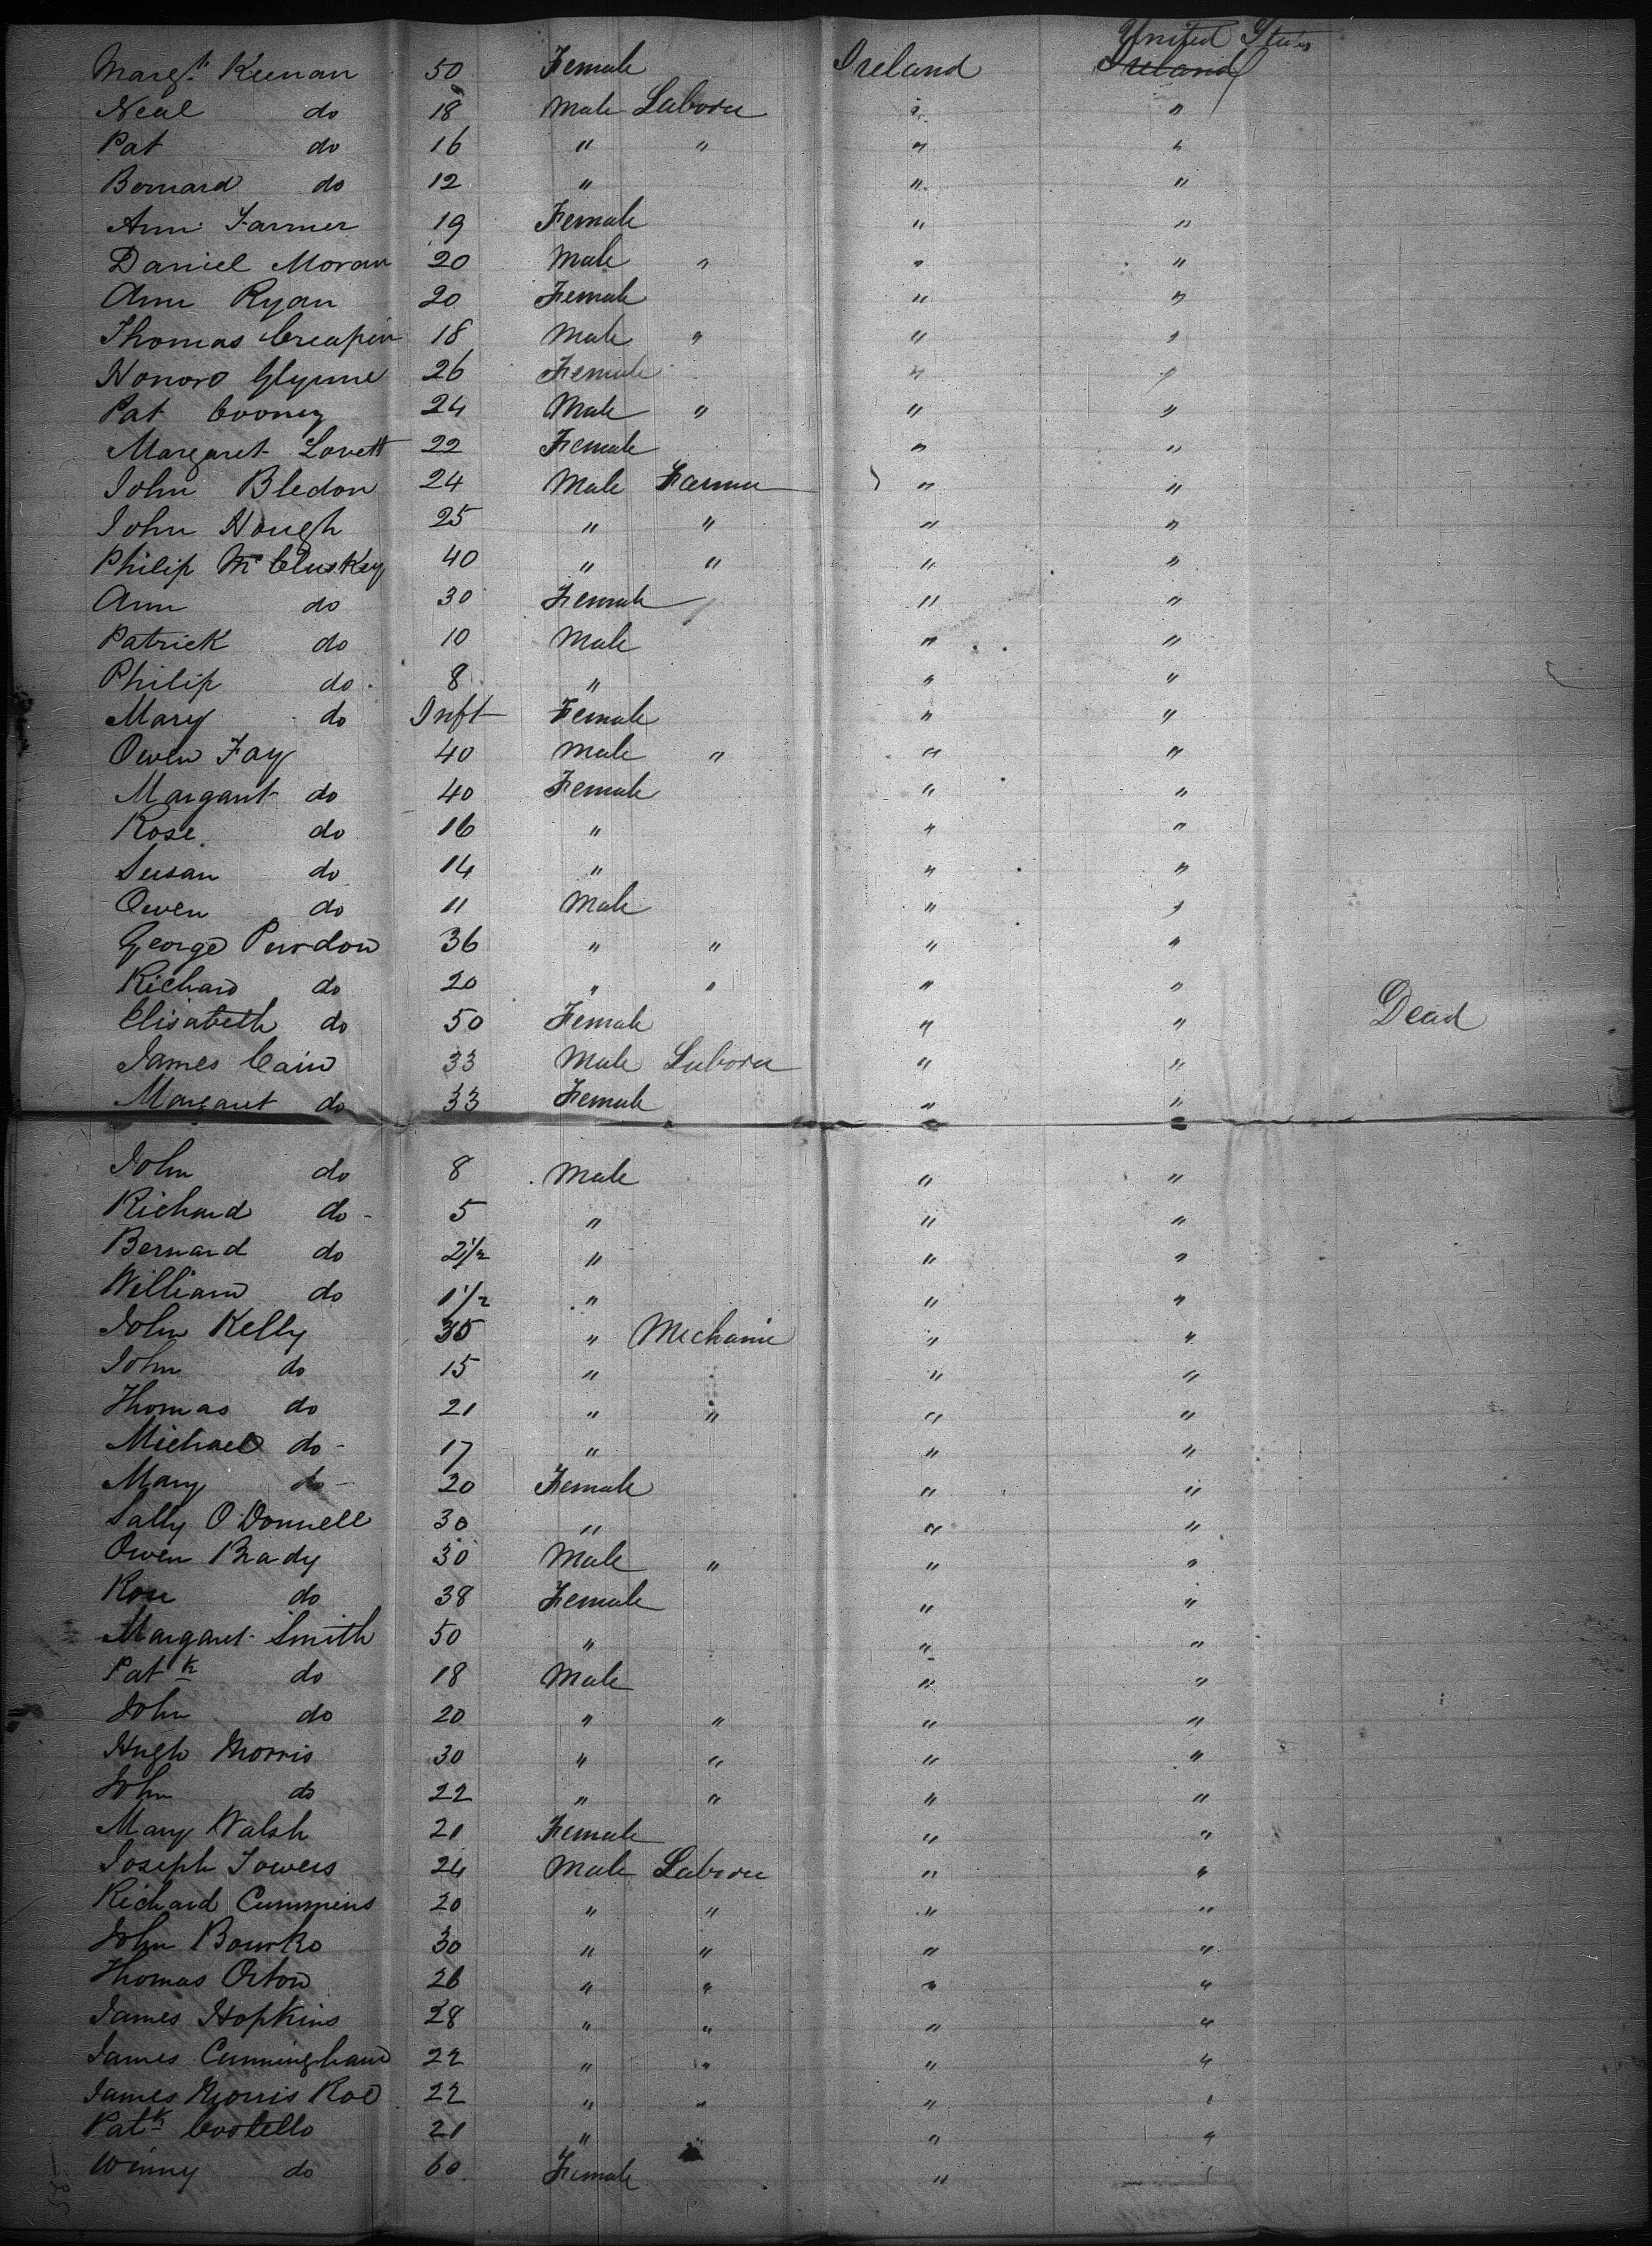 United States
Margt Keenan 50 Female Ireland Ireland
Neal do 18 Male Laborer " "
Pat do 16 " " " "
Bernard do 12 " " "
Ann Farmer 19 Female " "
Daniel Moran 20 Male " " "
Ann Ryan 20 Female " "
Thomas Creapin 18 Male " " "
Honoro Glynne 26 Female " "
Pat Cooney 24 Male " " "
Margaret Lovett 22 Female " "
John Bledon 24 Male Farmer " "
John Hough 25 " " " "
Philip McCluskey 40 " " " "
Ann do 30 Female " "
Patrick do 10 Male " "
Philip do 8 " " "
Mary do Inft Female " "
Owen Fay 40 Male " " "
Margaret do 40 Female " "
Rose do 16 " " "
Susan do 14 " " "
Owen do 11 Male " "
George Purdon 36 " " " "
Richard do 20 " " " "
Elisabeth do 50 Female " " Dead
James Cain 33 Male Laborer " "
Margaret do 33 Female " "
John do 8 Male " "
Richard do 5 " " "
Bernard do 2 1/2 " " "
William do 1 1/2 " " "
John Kelly 35 " Mechanic " "
John do 15 " " "
Thomas do 21 " " " "
Michael do 17 " " "
Mary do 20 Female " "
Sally O'Donnell 30 " " "
Owen Brady 30 Male " " "
Rose do 38 Female " "
Margaret Smith 50 " " "
Patk do 18 Male " "
John do 20 " " " "
Hugh Morris 30 " " " "
John do 22 " " " "
Mary Walsh 21 Female " "
Joseph Towers 24 Male Laborer " "
Richard Cummins 20 " " " "
John Bourke 30 " " " "
Thomas Orton 26 " " " "
James Hopkins 28 " " " "
James Cunningham 22 " " " "
James Morris Roe 22 " " " "
Patk Costello 21 " " " "
Winny do 60 Female " "